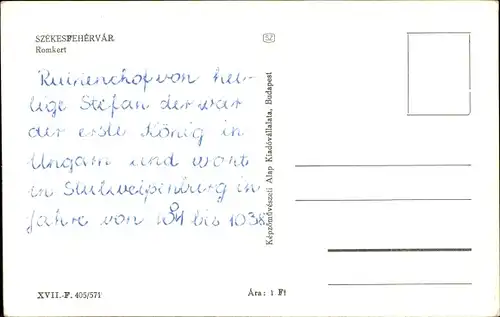 SZÉKESFEHÉRVÁR
Romkert
Ruinenhof von hei-
lige Stefan der war
der erste König in
Ungarn und wont
in Stulweipenburg in
Jahre von bis 1038
Képzőművészeti Alap Kiadóvállalata, Budapest
XVII.-F. 405/571
Ára: 1 Ft